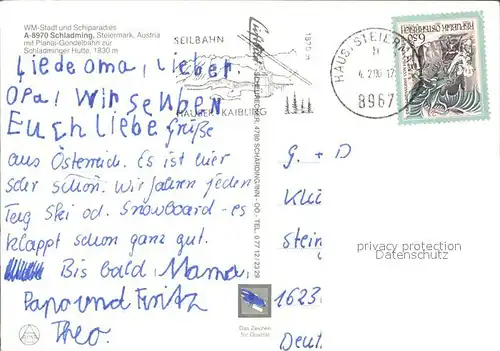 WM-Stadt und Schiparadies
A-8970 Schladming, Steiermark, Austria
mit Planai-Gondelbahn zur
Schladminger Hütte, 1830 m
Liede oma, lieber.
Opa! Wir senben
Euch liebe Grüße
aus Österreich. Es ist hier
sehr schön. Wir fahren jeden
Tag Ski od. Snowboard - es
klappt schon ganz gut.
Bis bald, Mama,
Papa und Fritz
Theo.
SEILBAHN
1850 m
HAUSER KAIBLING
HAUS, STEIERM
8967
6.50
REPUBLIK ÖSTERREICH
G. + D
Stein
1623
Deut
privacy protection
Datenschutz
Das Zeichen
für Qualität